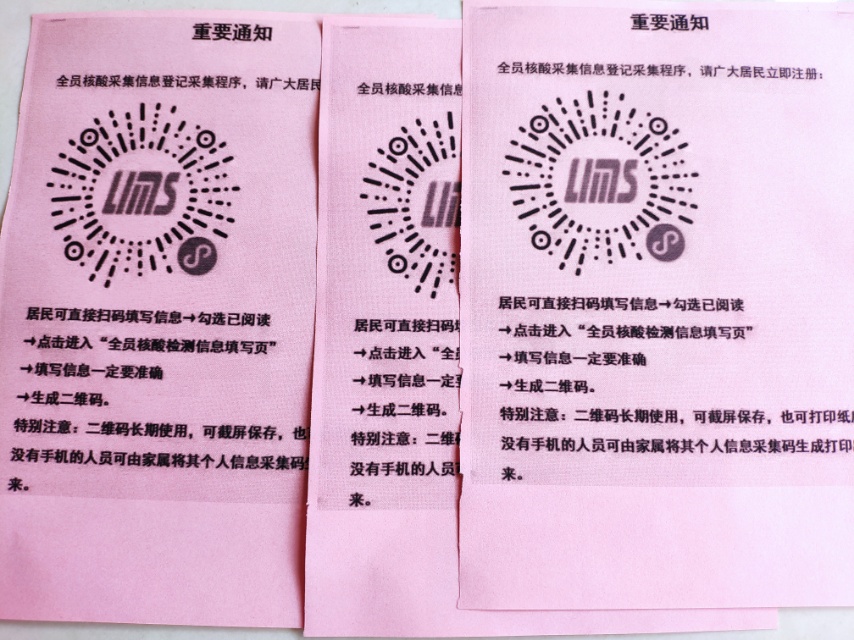 重要通知
全员核酸采集信息登记采集程序，请广大居民
LIMS
居民可直接扫码填写信息→勾选已阅读
→点击进入“全员核酸检测信息填写页”
→填写信息一定要准确
→生成二维码。
特别注意：二维码长期使用，可截屏保存，也
没有手机的人员可由家属将其个人信息采集码
来。
全员核酸采集信息
LI
居民可直接扫码
→点击进入“全
→填写信息一定
→生成二维码。
特别注意：二维
没有手机的人员
来。
重要通知
全员核酸采集信息登记采集程序，请广大居民立即注册：
LIMS
居民可直接扫码填写信息→勾选已阅读
→点击进入“全员核酸检测信息填写页”
→填写信息一定要准确
→生成二维码。
特别注意：二维码长期使用，可截屏保存，也可打印纸
没有手机的人员可由家属将其个人信息采集码生成打印
来。